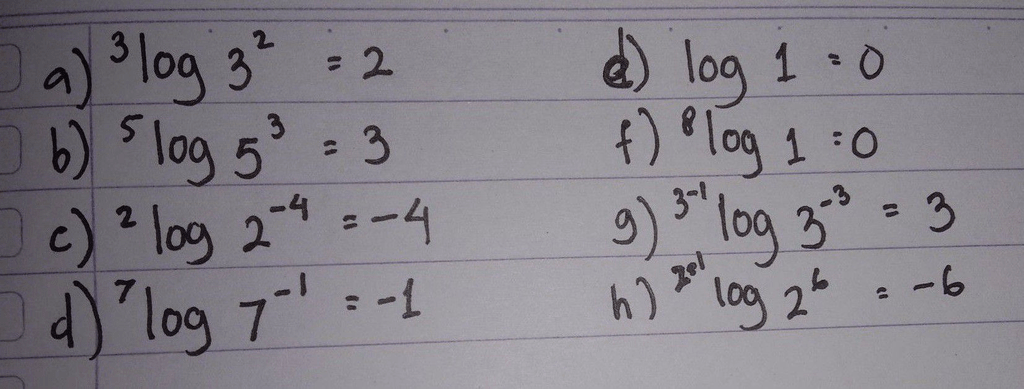 a) ³log 3² = 2
b) ⁵log 5³ = 3
c) ²log 2⁻⁴ = -4
d) ⁷log 7⁻¹ = -1
d) log 1 = 0
f) ⁸log 1 = 0
g) ³⁻¹log 3⁻³ = 3
h) ²⁻¹log 2⁶ = -6